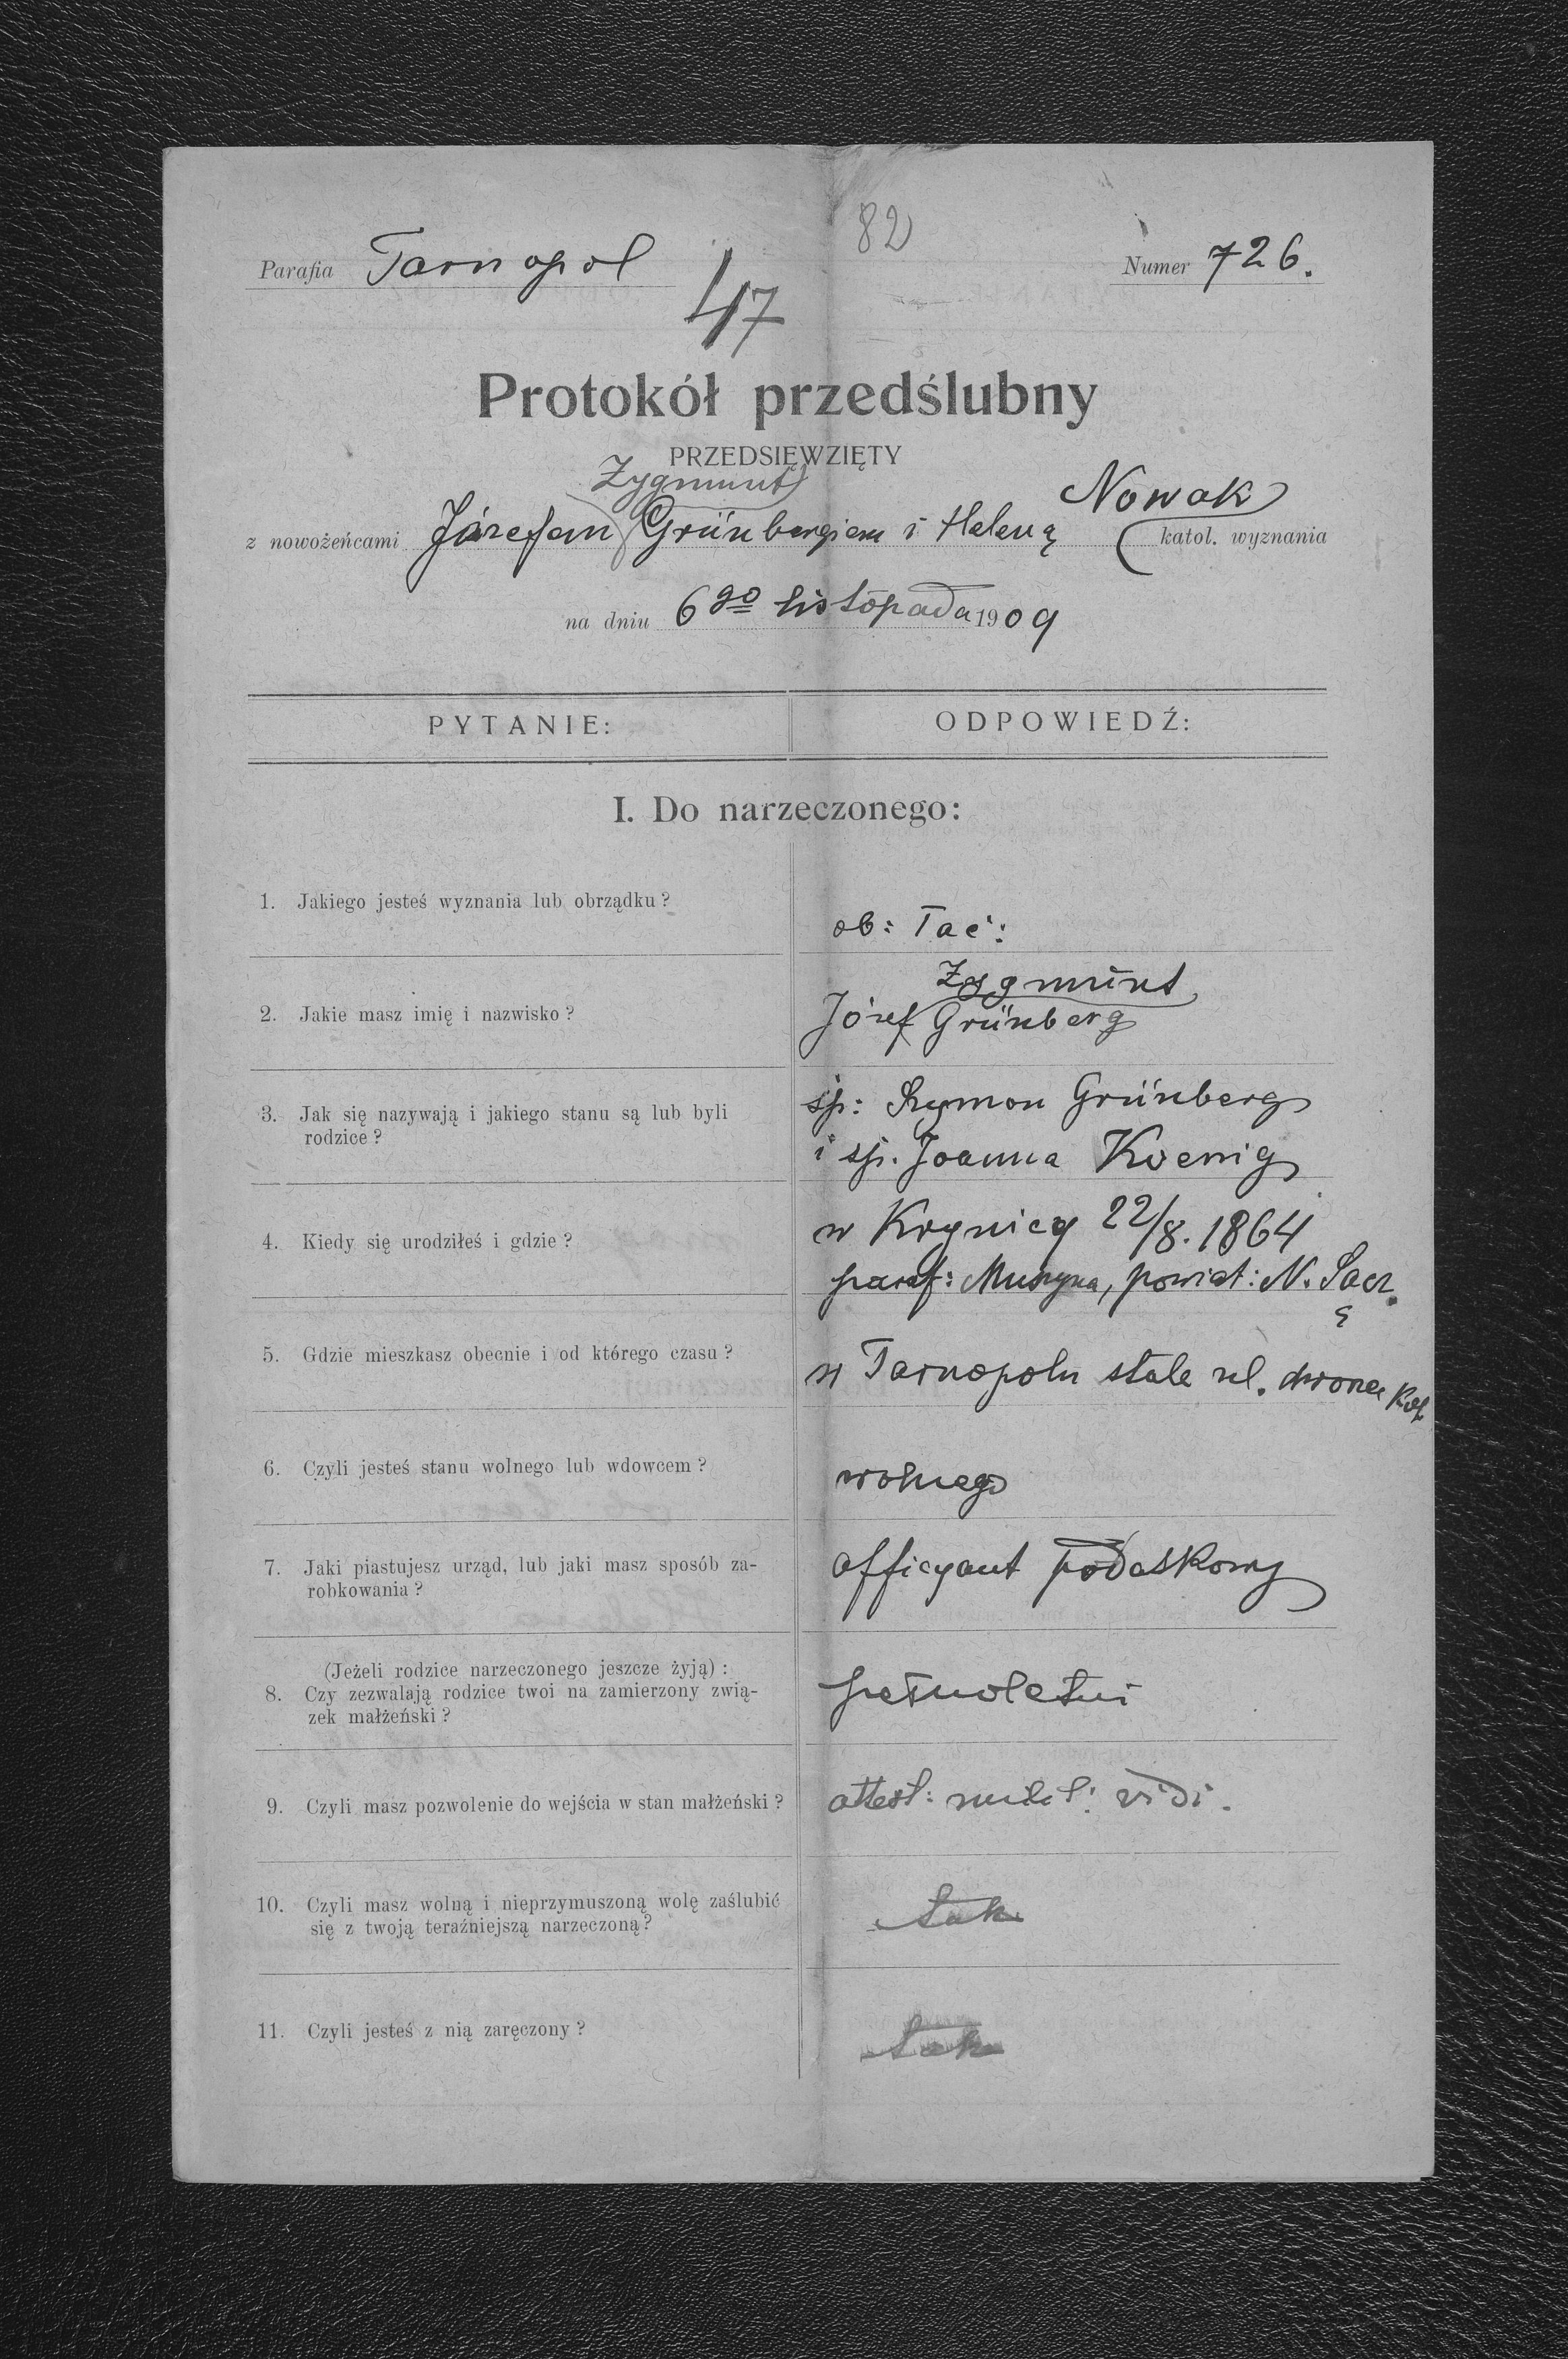 82
Parafia Tarnopol
Numer 726.
47
Protokół przedślubny
PRZEDSIĘWZIĘTY
Zygmunt
Nowak
z nowożeńcami Józefem Grünbergiem i Heleną katol. wyznania
na dniu 6go listopada 1909
PYTANIE: ODPOWIEDŹ:
I. Do narzeczonego:
1. Jakiego jesteś wyznania lub obrządku?
ob: łać:
Zygmunt
2. Jakie masz imię i nazwisko?
Józef Grünberg
3. Jak się nazywają i jakiego stanu są lub byli
rodzice?
śp: Szymon Grünberg
i śp. Joanna Koenig
4. Kiedy się urodziłeś i gdzie?
w Krynicy 22/8. 1864
paraf: Muszyna, powiat: N. Sącz.
5. Gdzie mieszkasz obecnie i od którego czasu?
w Tarnopolu stale ul. dworzec kol
6. Czyli jesteś stanu wolnego lub wdowcem?
wolnego
7. Jaki piastujesz urząd, lub jaki masz sposób za-
robkowania?
officyant podatkowy
(Jeżeli rodzice narzeczonego jeszcze żyją):
8. Czy zezwalają rodzice twoi na zamierzony zwią-
zek małżeński?
pełnoletni
9. Czyli masz pozwolenie do wejścia w stan małżeński?
attest: milit: vidi.
10. Czyli masz wolną i nieprzymuszoną wolę zaślubić
się z twoją teraźniejszą narzeczoną?
tak
11. Czyli jesteś z nią zaręczony?
tak